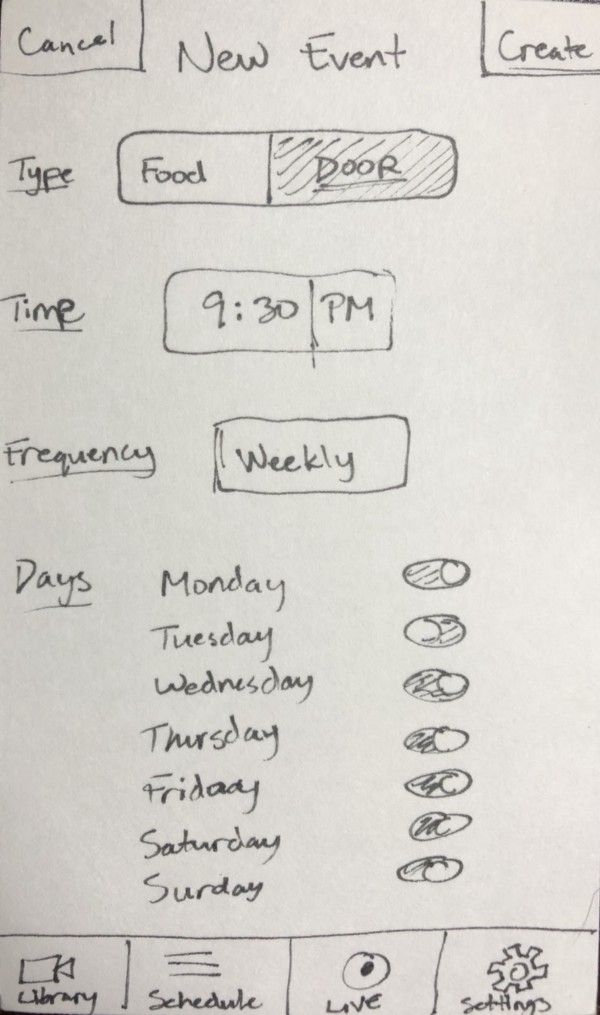 Cancel New Event Create
Type Food DOOR
Time 9:30 PM
Frequency Weekly
Days Monday
Tuesday
Wednesday
Thursday
Friday
Saturday
Sunday
Library Schedule LIVE Settings